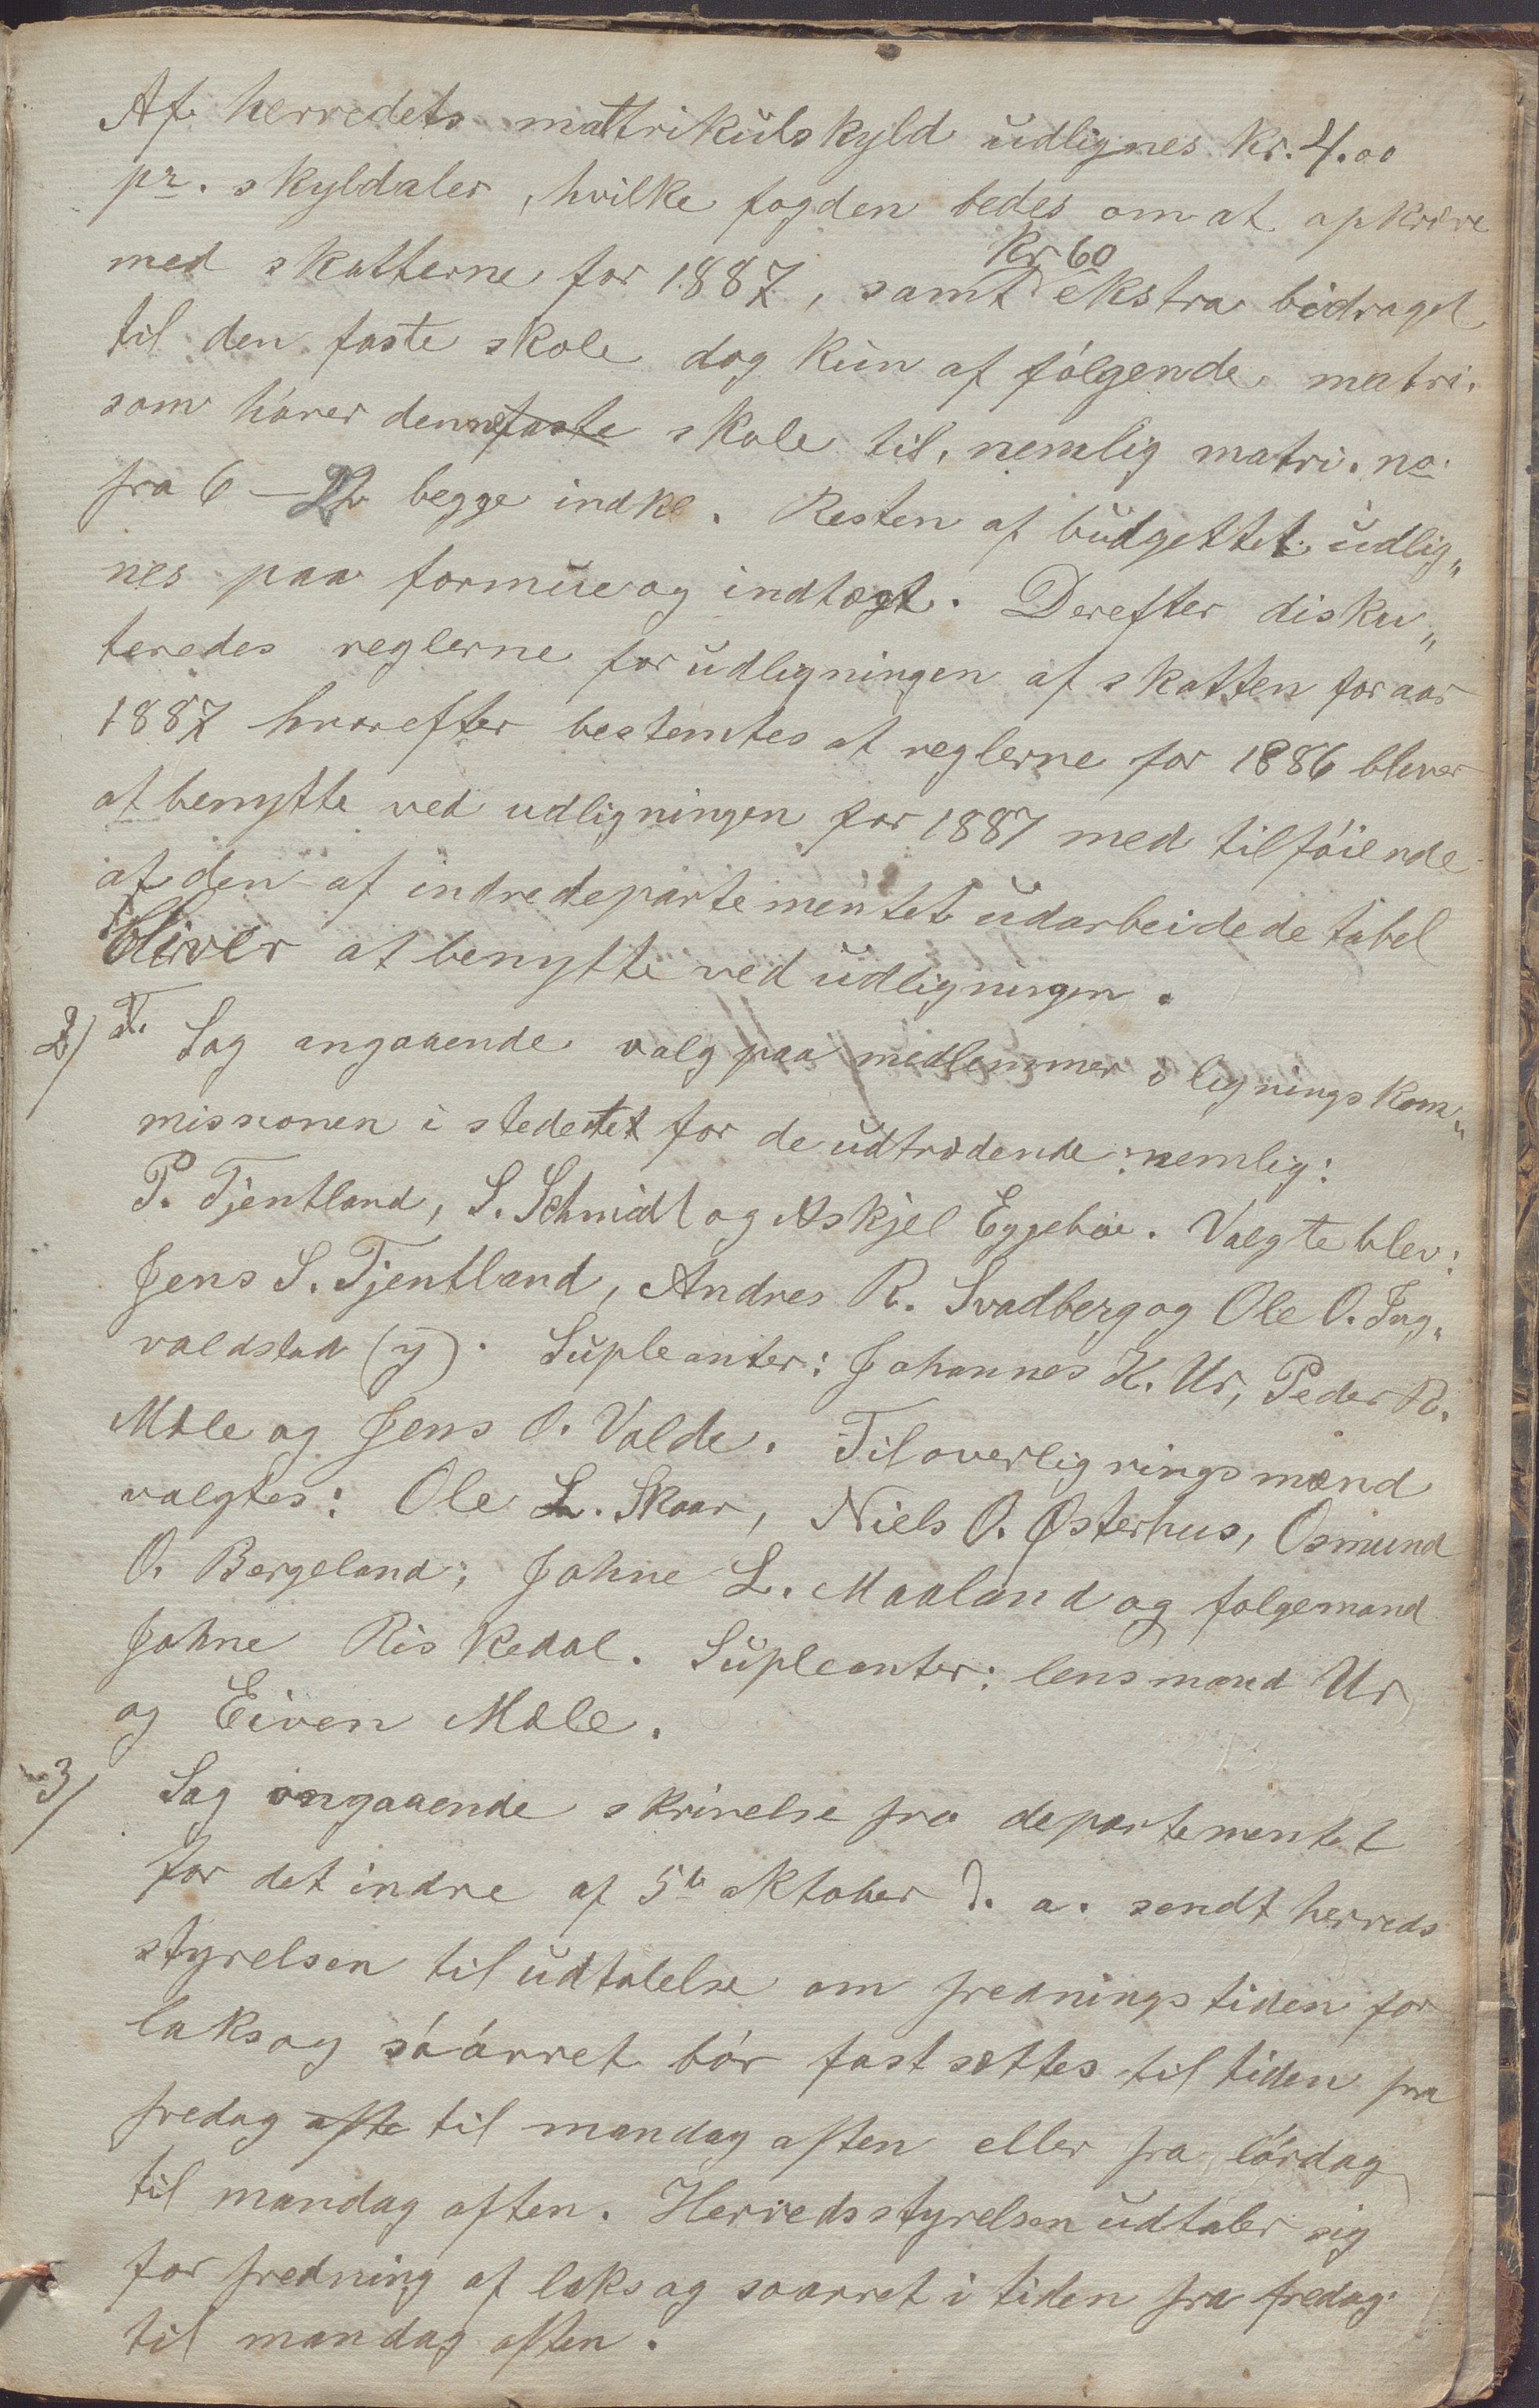 Af herredets mattrikulskyld udlignes kr. 4.00
pr. skyldaler, hvilke fogden bedes om at opkræve
med skatterne for 1887, samt kr 60 ekstra bidraget
til den faste skole dog kun af følgende matri.
som hører denne faste skole til, nemlig matri. no.
fra 6 – 22 begge indkl. Resten af budgettet udlig„
nes paa formue og indtægt. Derefter disku„
teredes reglerne for udligningen af skatten for aar
1887 hvorefter bestemtes at reglerne for 1886 bliver
at benytte ved udligningen for 1887 med tilføiende
at den af indredepartementet udarbeidede tabel
bliver at benytte ved udligningen.
2/ Sag angaaende valg paa medlemmer i ligningskom„
missionen i stedetet for de udtrædende: nemlig:
P. Tjentland, S. Schmidt og Askjel Eggebøe. Valgte blev:
Jens S. Tjentland, Andres R. Svadberg og Ole O. Ing„
valdstad (y). Supleanter: Johannes K. Ur, Peder R.
Mæle og Jens O. Valde. Til overligningsmænd
valgtes: Ole L. Skaar, Niels O. Østerhus, Osmund
O. Bergeland, Johne L. Maaland og følgemand
Johne Riskedal. Supleanter: lensmand Ur
og Eiven Mæle.
3/ Sag angaaende skrivelse fra departementet
for det indre af 5te oktober d. a. sendt herreds
styrelsen til udtalelse om fredningstiden for
laks og søørret bør fastsættes til tiden fra
fredag afte til mandag aften eller fra lørdag
til mandag aften. Herredsstyrelsen udtaler sig
for fredning af laks og søørret i tiden fra fredag
til mandag aften.